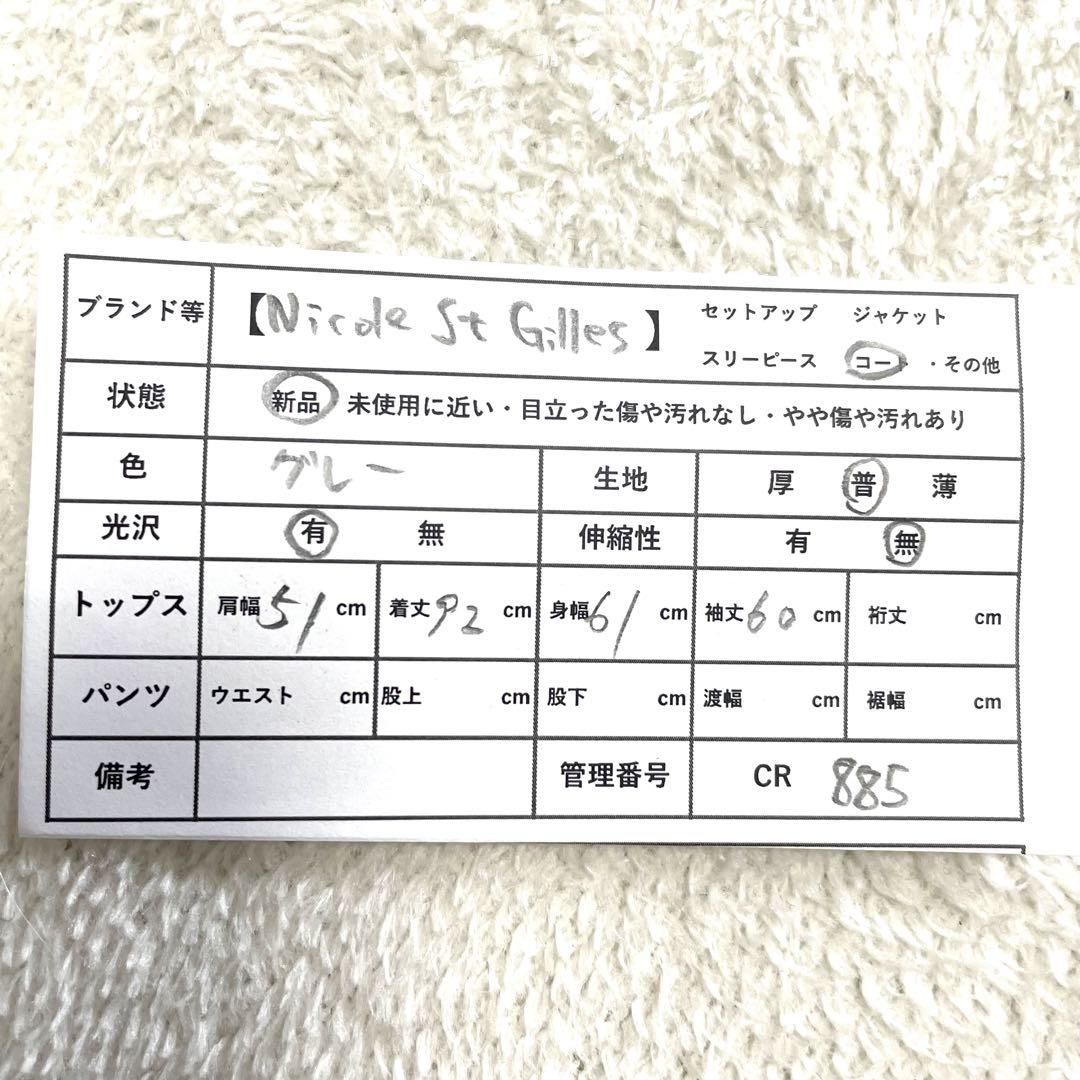 ブランド等 【Nicole St Gilles】 セットアップ ジャケット
スリーピース コート ・その他
状態 新品 未使用に近い・目立った傷や汚れなし・やや傷や汚れあり
色 グレー 生地 厚 普 薄
光沢 有 無 伸縮性 有 無
トップス 肩幅 51 cm 着丈 92 cm 身幅 61 cm 袖丈 60 cm 裄丈 cm
パンツ ウエスト cm 股上 cm 股下 cm 渡幅 cm 裾幅 cm
備考 管理番号 CR 885